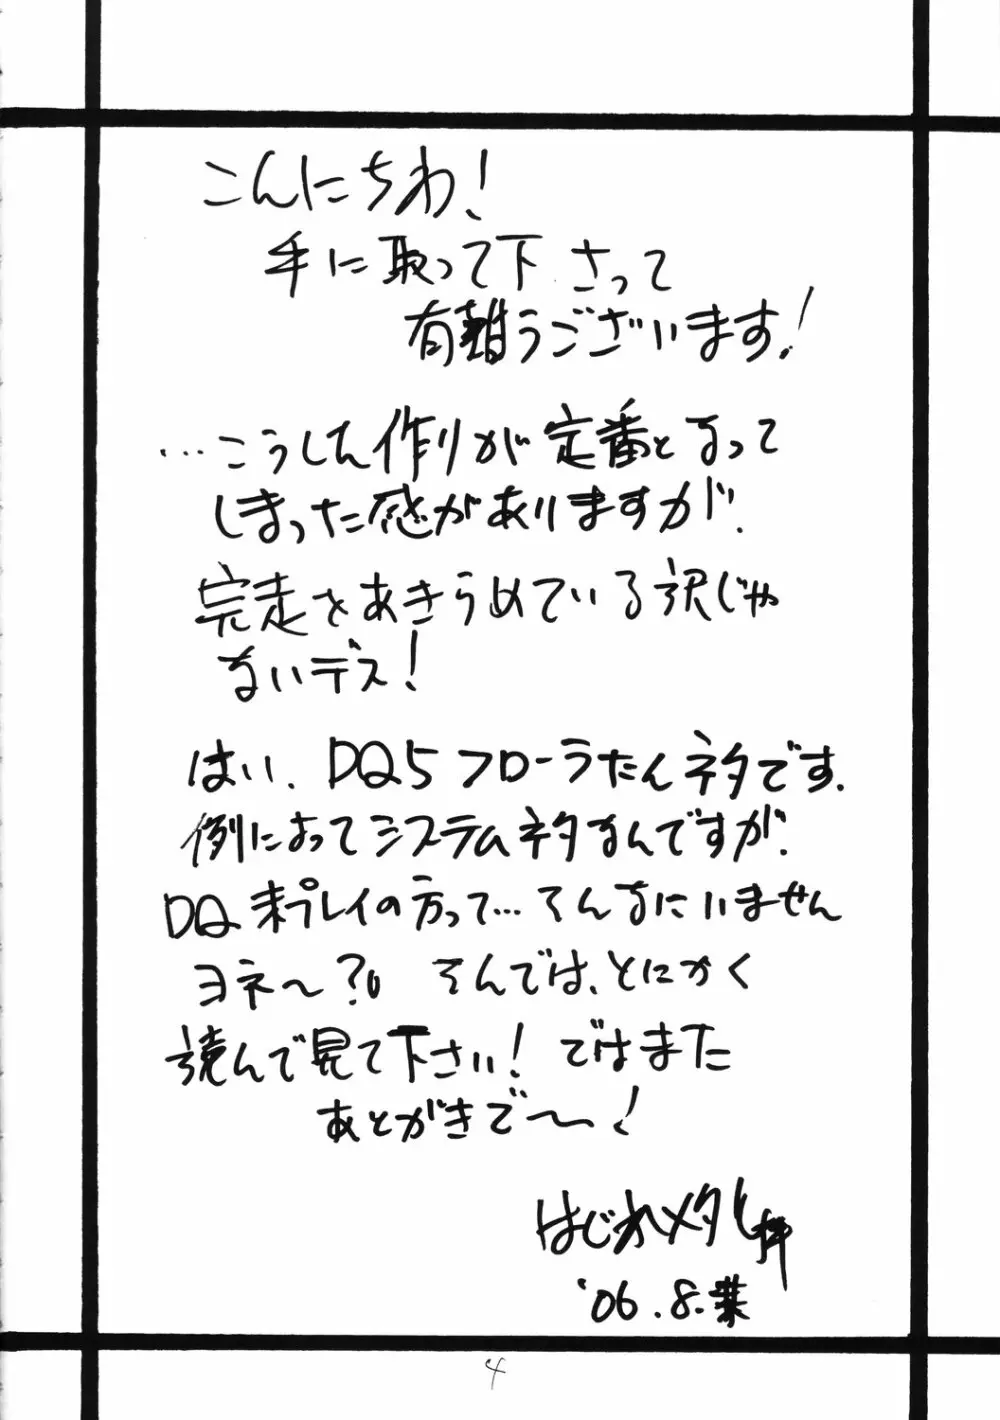 こんにちわ!
手に取って下さって
有難うございます!
…こうした作りが定番となって
しまった感がありますが.
完走をあきらめている訳じゃ
ないデス!
はい. DQ5フローラたんネタです.
例によってシステムネタなんですが.
DQ未プレイの方って…そんなにいません
ヨネ〜?。 そんでは、とにかく
読んで見て下さい! ではまた
あとがきで〜!
はじれメタル拝
'06.8.葉
4